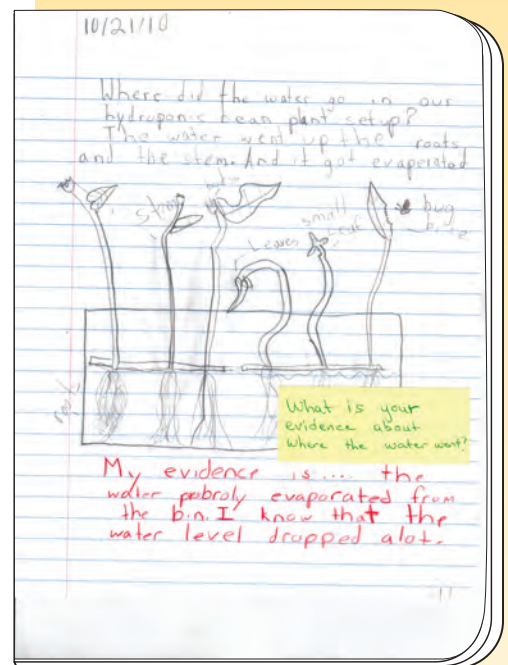 10/21/10
Where did the water go in our
hydroponic bean plant setup?
The water went up the roots
and the stem. And it got evaporated
stem
Leaves
small
Leaf
bug
root
What is your
evidence about
where the water went?
My evidence is.... the
water pobroly evaporated from
the bin. I know that the
water level dropped alot.
11